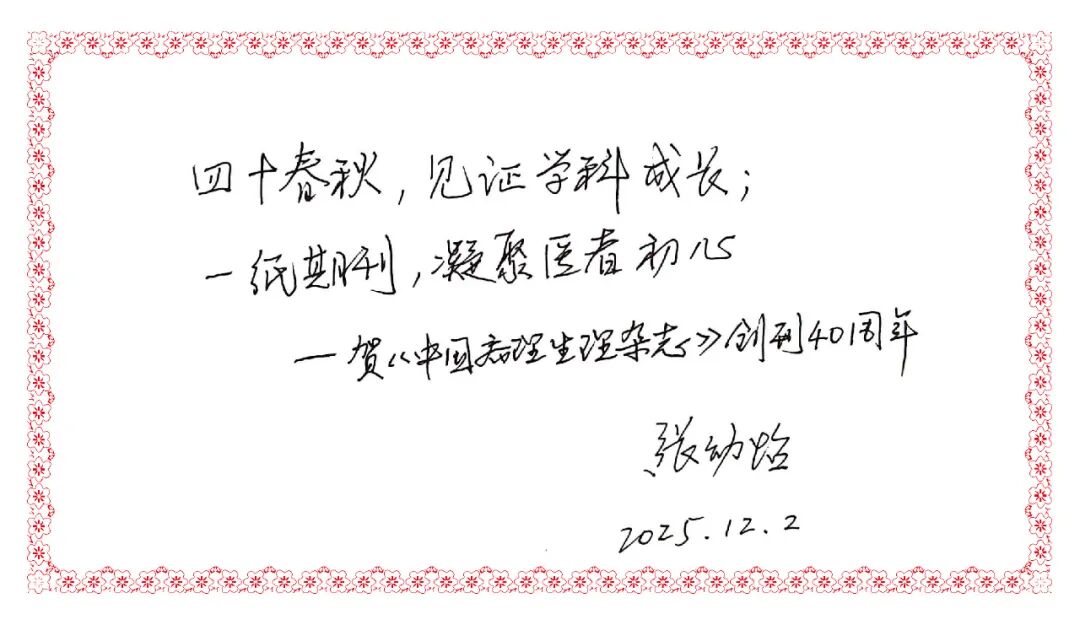 四十春秋，见证学科成长；
一纸期刊，凝聚医者初心
—贺《中国病理生理杂志》创刊40周年
张幼怡
2025.12.2